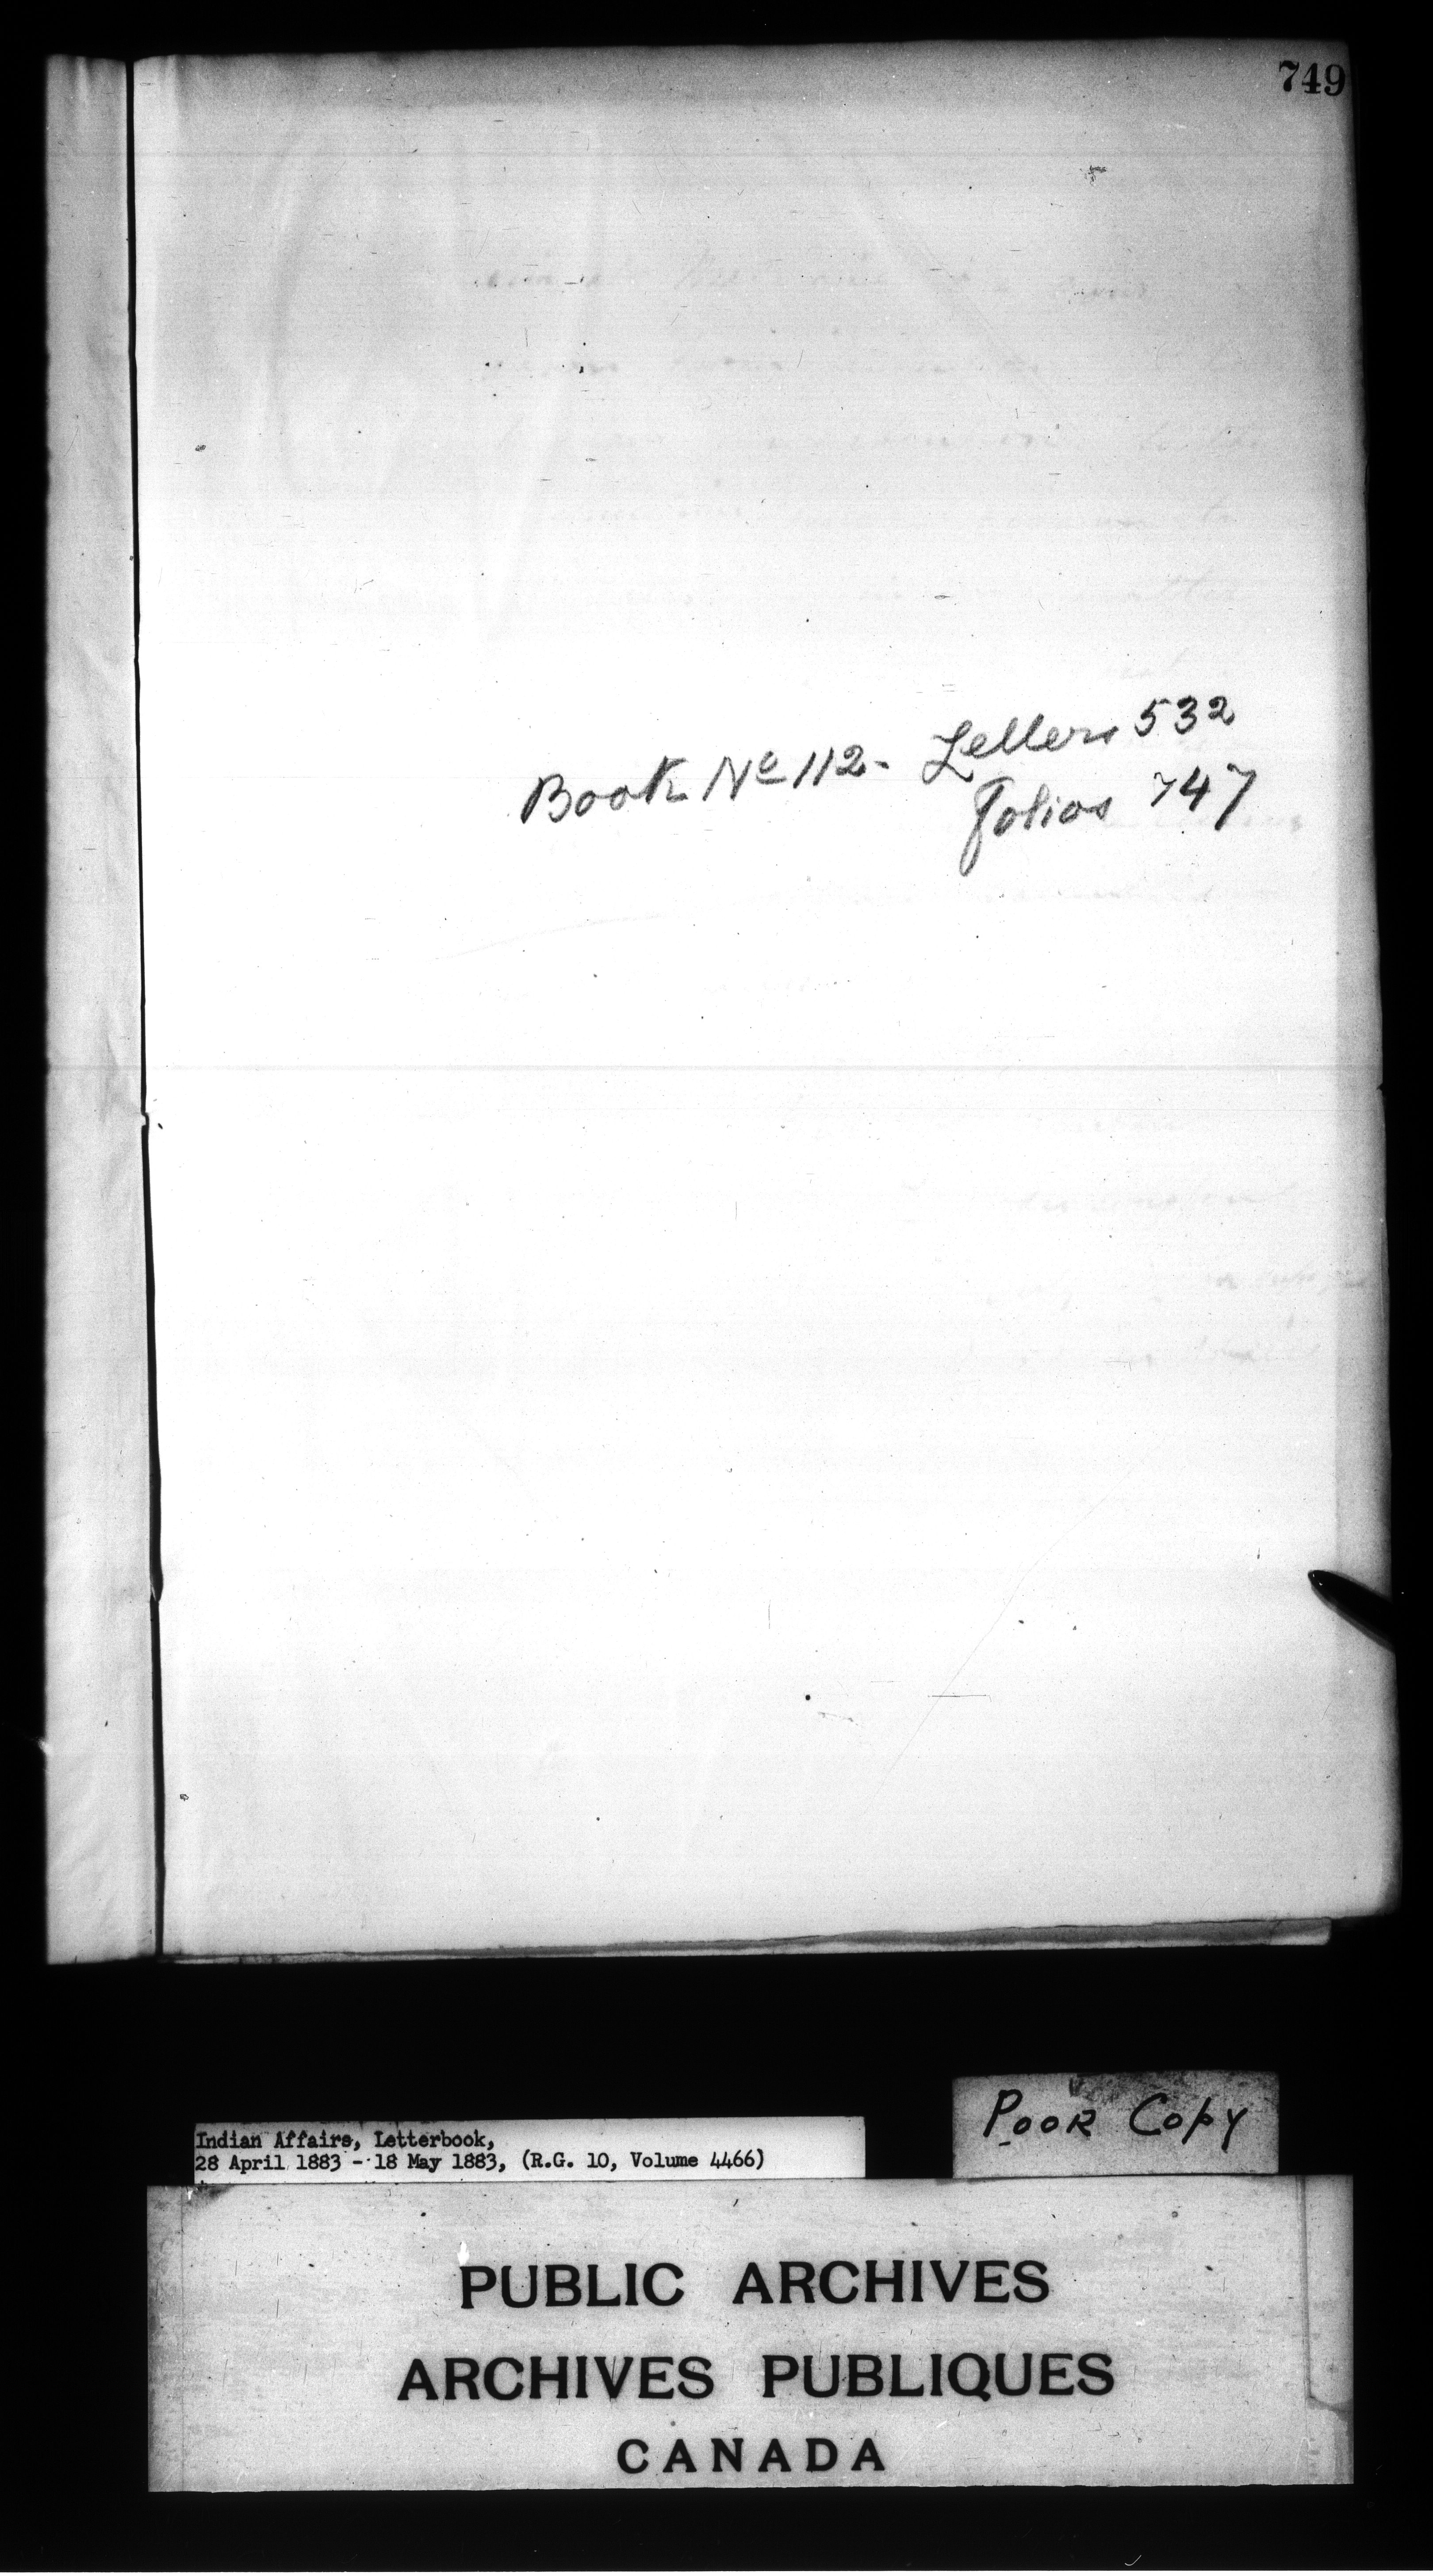 749
Book No 112 - Letters 532
Folios 747
Poor Copy
Indian Affairs, Letterbook,
28 April 1883 - 18 May 1883, (R.G. 10, Volume 4466)
PUBLIC ARCHIVES
ARCHIVES PUBLIQUES
CANADA